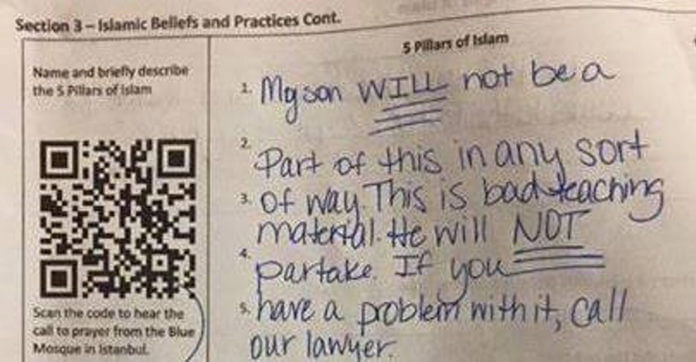 Section 3 – Islamic Beliefs and Practices Cont.
Name and briefly describe
the 5 Pillars of Islam
Scan the code to hear the
call to prayer from the Blue
Mosque in Istanbul.
5 Pillars of Islam
1. My son WILL not be a
2. Part of this in any sort
3. of way. This is bad teaching
material. He will NOT
4. partake. If you
5. have a problem with it, call
our lawyer.